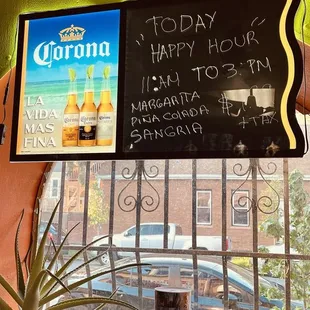 Corona
LA
VIDA
MAS
FINA
"TODAY"
HAPPY HOUR
11:AM TO 3:PM
MARGARITA
PIÑA COLADA
SANGRIA
+ TAX